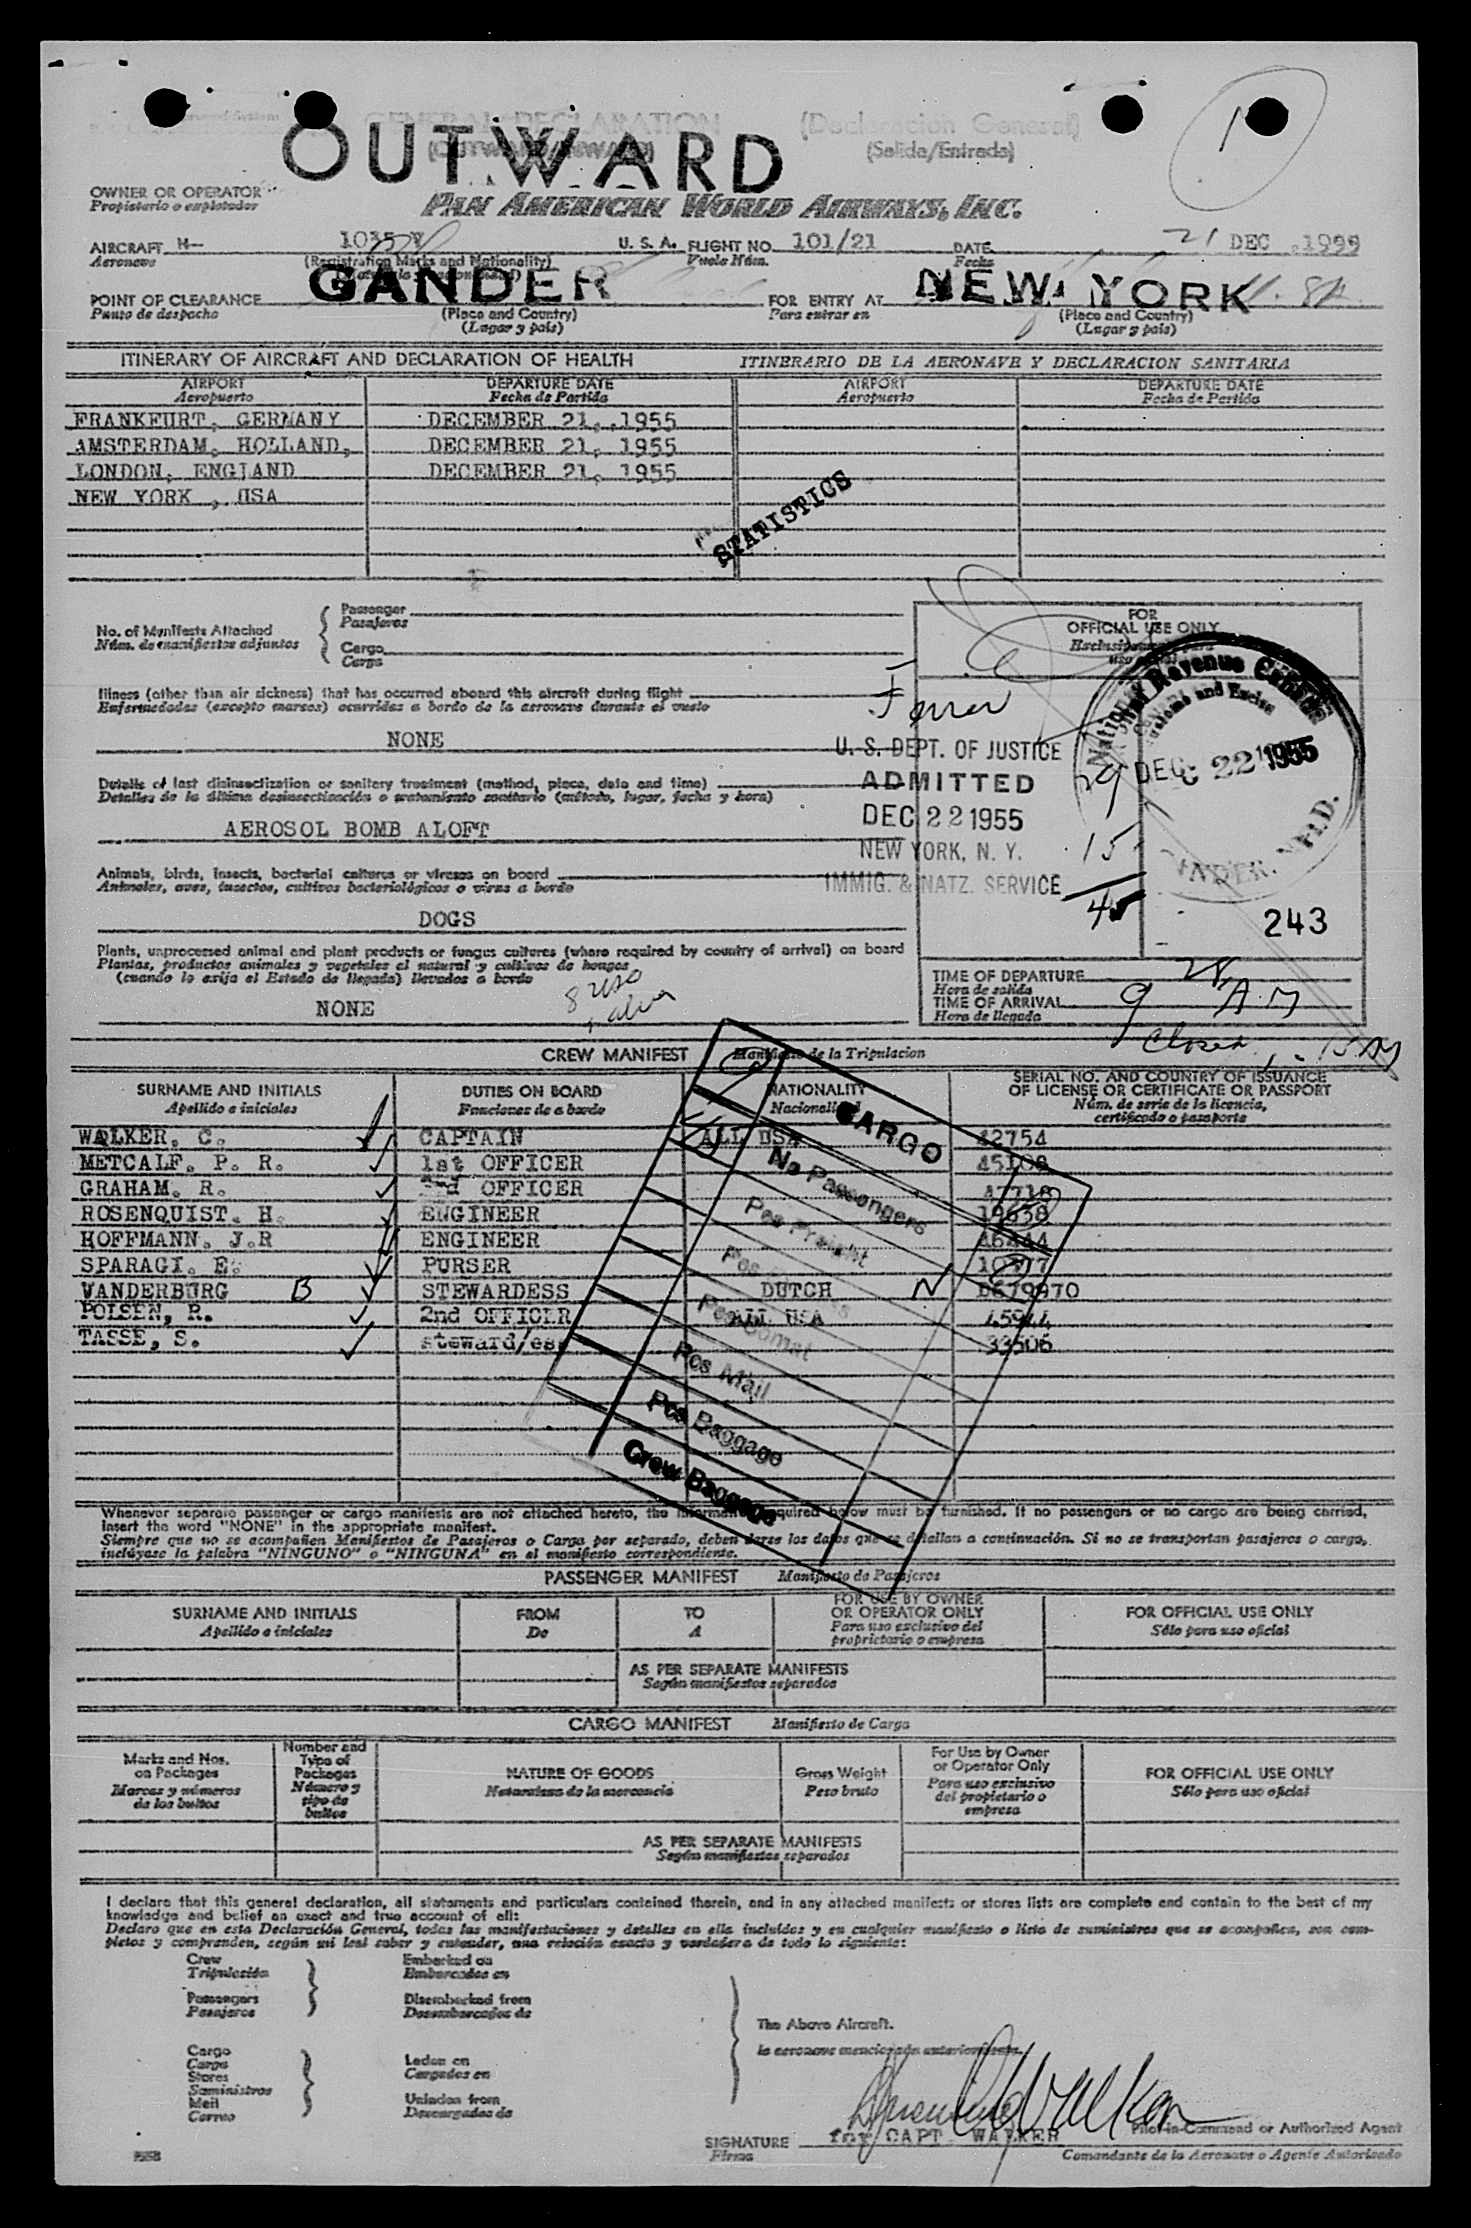 GENERAL DECLARATION (Declaracion General)
OUTWARD
(OUTWARD/INWARD) (Salida/Entrada)
OWNER OR OPERATOR
Propietario o explotador
PAN AMERICAN WORLD AIRWAYS, INC.
AIRCRAFT N- 1035 V U. S. A. FLIGHT NO. 101/21 DATE 21 DEC , 1955
Aeronave (Registration Marks and Nationality) Vuelo Núm. Fecha
GANDER NEW YORK
POINT OF CLEARANCE FOR ENTRY AT
Punto de despacho (Place and Country) Para entrar en (Place and Country)
(Lugar y país) (Lugar y país)
ITINERARY OF AIRCRAFT AND DECLARATION OF HEALTH ITINERARIO DE LA AERONAVE Y DECLARACION SANITARIA
AIRPORT DEPARTURE DATE AIRPORT DEPARTURE DATE
Aeropuerto Fecha de Partida Aeropuerto Fecha de Partida
FRANKFURT, GERMANY DECEMBER 21, 1955
AMSTERDAM, HOLLAND, DECEMBER 21, 1955
LONDON, ENGLAND DECEMBER 21, 1955
NEW YORK , USA
STATISTICS
No. of Manifests Attached
Núm. de manifiestos adjuntos
Passenger
Pasajeros
Cargo
Carga
FOR
OFFICIAL USE ONLY
Illness (other than air sickness) that has occurred aboard this aircraft during flight
Enfermedades (excepto mareos) ocurridas a bordo de la aeronave durante el vuelo
NONE
Details of last disinsectization or sanitary treatment (method, place, date and time)
Detalles de la última desinsectización o tratamiento sanitario (método, lugar, fecha y hora)
AEROSOL BOMB ALOFT
Animals, birds, insects, bacterial cultures or viruses on board
Animales, aves, insectos, cultivos bacteriológicos o virus a bordo
DOGS
Plants, unprocessed animal and plant products or fungus cultures (where required by country of arrival) on board
Plantas, productos animales y vegetales al natural y cultivos de hongos
(cuando lo exija el Estado de llegada) llevados a bordo
NONE
U. S. DEPT. OF JUSTICE
ADMITTED
DEC 22 1955
NEW YORK, N. Y.
IMMIG. & NATZ. SERVICE
29
15
National Revenue Canada
Customs and Excise
DEC 22 1955
GANDER, NFLD.
243
TIME OF DEPARTURE
Hora de salida
TIME OF ARRIVAL 9 28 AM
Hora de llegada
Closed
CREW MANIFEST Manifiesto de la Tripulacion
SURNAME AND INITIALS DUTIES ON BOARD NATIONALITY SERIAL NO. AND COUNTRY OF ISSUANCE
OF LICENSE OR CERTIFICATE OR PASSPORT
Apellido e iniciales Funciones de a bordo Nacionalidad Núm. de serie de la licencia,
certificado o pasaporte
WALKER, C. CAPTAIN ALL USA 42754
METCALF, P. R. 1st OFFICER 45108
GRAHAM, R. OFFICER 47718
ROSENQUIST, H. ENGINEER 19638
HOFFMANN, J.R ENGINEER 46444
SPARAGI, E. PURSER
VANDERBURG B STEWARDESS DUTCH N D679970
POLSEN, R. 2nd OFFICER ALL USA 45944
TASSE, S. steward/ess 33506
CARGO
No Passengers
Pcs Freight
Pcs
Pcs Comat
Pcs Mail
Pcs Baggage
Crew Baggage
Whenever separate passenger or cargo manifests are not attached hereto, the information required below must be furnished. If no passengers or no cargo are being carried,
insert the word "NONE" in the appropriate manifest.
Siempre que no se acompañen Manifiestos de Pasajeros o Carga por separado, deben darse los datos que se detallan a continuación. Si no se transportan pasajeros o cargo,
inclúyase la palabra "NINGUNO" o "NINGUNA" en el manifiesto correspondiente.
PASSENGER MANIFEST Manifiesto de Pasajeros
SURNAME AND INITIALS FROM TO FOR USE BY OWNER
OR OPERATOR ONLY FOR OFFICIAL USE ONLY
Apellido e iniciales De A Para uso exclusivo del
propietario o empresa Sólo para uso oficial
AS PER SEPARATE MANIFESTS
Según manifiestos separados
CARGO MANIFEST Manifiesto de Carga
Marks and Nos.
on Packages
Marcas y números
de los bultos
Number and
Type of
Packages
Número y
tipo de
bultos
NATURE OF GOODS
Naturaleza de la mercancía
Gross Weight
Peso bruto
For Use by Owner
or Operator Only
Para uso exclusivo
del propietario o
empresa
FOR OFFICIAL USE ONLY
Sólo para uso oficial
AS PER SEPARATE MANIFESTS
Según manifiestos separados
I declare that this general declaration, all statements and particulars contained therein, and in any attached manifests or stores lists are complete and contain to the best of my
knowledge and belief an exact and true account of all:
Declaro que en esta Declaración General, todas las manifestaciones y detalles en ella incluidos y en cualquier manifiesto o lista de suministros que se acompañen, son com-
pletos y comprenden, según mi leal saber y entender, una relación exacta y verdadera de todo lo siguiente:
Crew Embarked on
Tripulación Embarcados en
Passengers Disembarked from
Pasajeros Desembarcados de
The Above Aircraft.
la aeronave mencionada anteriormente.
Cargo
Carga
Stores
Suministros
Mail
Correo
Laden on
Cargados en
Unladen from
Descargados de
SIGNATURE for CAPT WALKER Pilot-in-Command or Authorized Agent
Firma Comandante de la Aeronave o Agente Autorizado